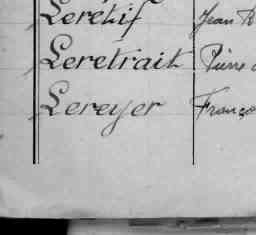 Leretif Jean R
Leretrait Pierre
Lereyer Franço